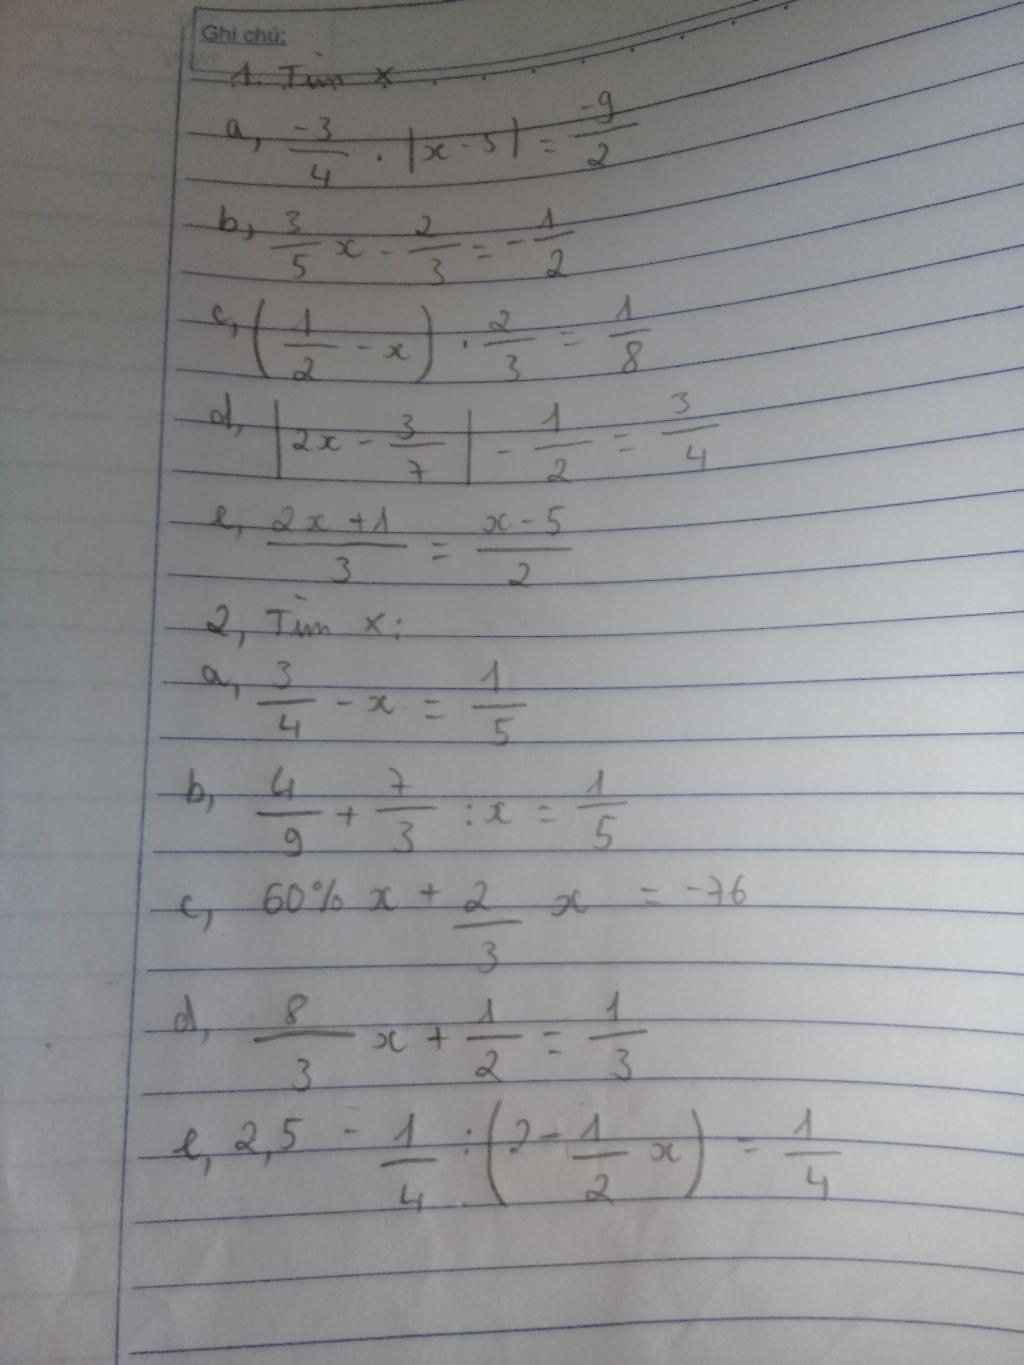 Ghi chú:
1. Tìm x
a, -3/4 . |x - 5| = -9/2
b, 3/5 x - 2/3 = -1/2
c, (1/2 - x) . 2/3 = 1/8
d, |2x - 3/7| - 1/2 = 3/4
e, 2x + 1/3 = x - 5/2
2, Tìm x:
a, 3/4 - x = 1/5
b, 4/9 + 7/3 : x = 1/5
c, 60% x + 2/3 x = -76
d, 8/3 x + 1/2 = 1/3
e, 2,5 - 1/4 : (2 - 1/2 x) = 1/4